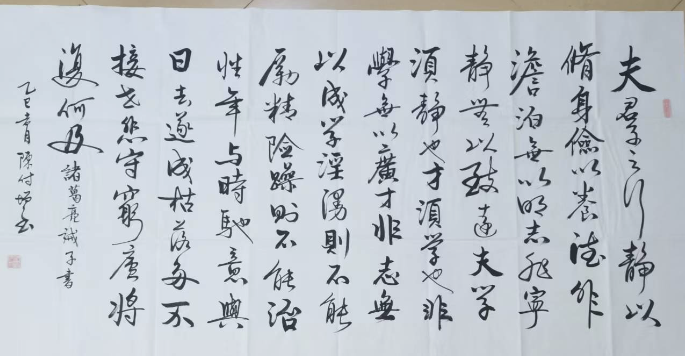 夫君子之行静以
脩身儉以养德非
澹泊無以明志非寧
静無以致遠夫学
須静也才須学也非
學無以廣才非志無
以成学淫漫則不能
励精险躁则不能治
性年与時馳意與
日去遂成枯落多不
接世悲守窮廬將
復何及 諸葛亮誡子書
乙巳 月 陳付 书